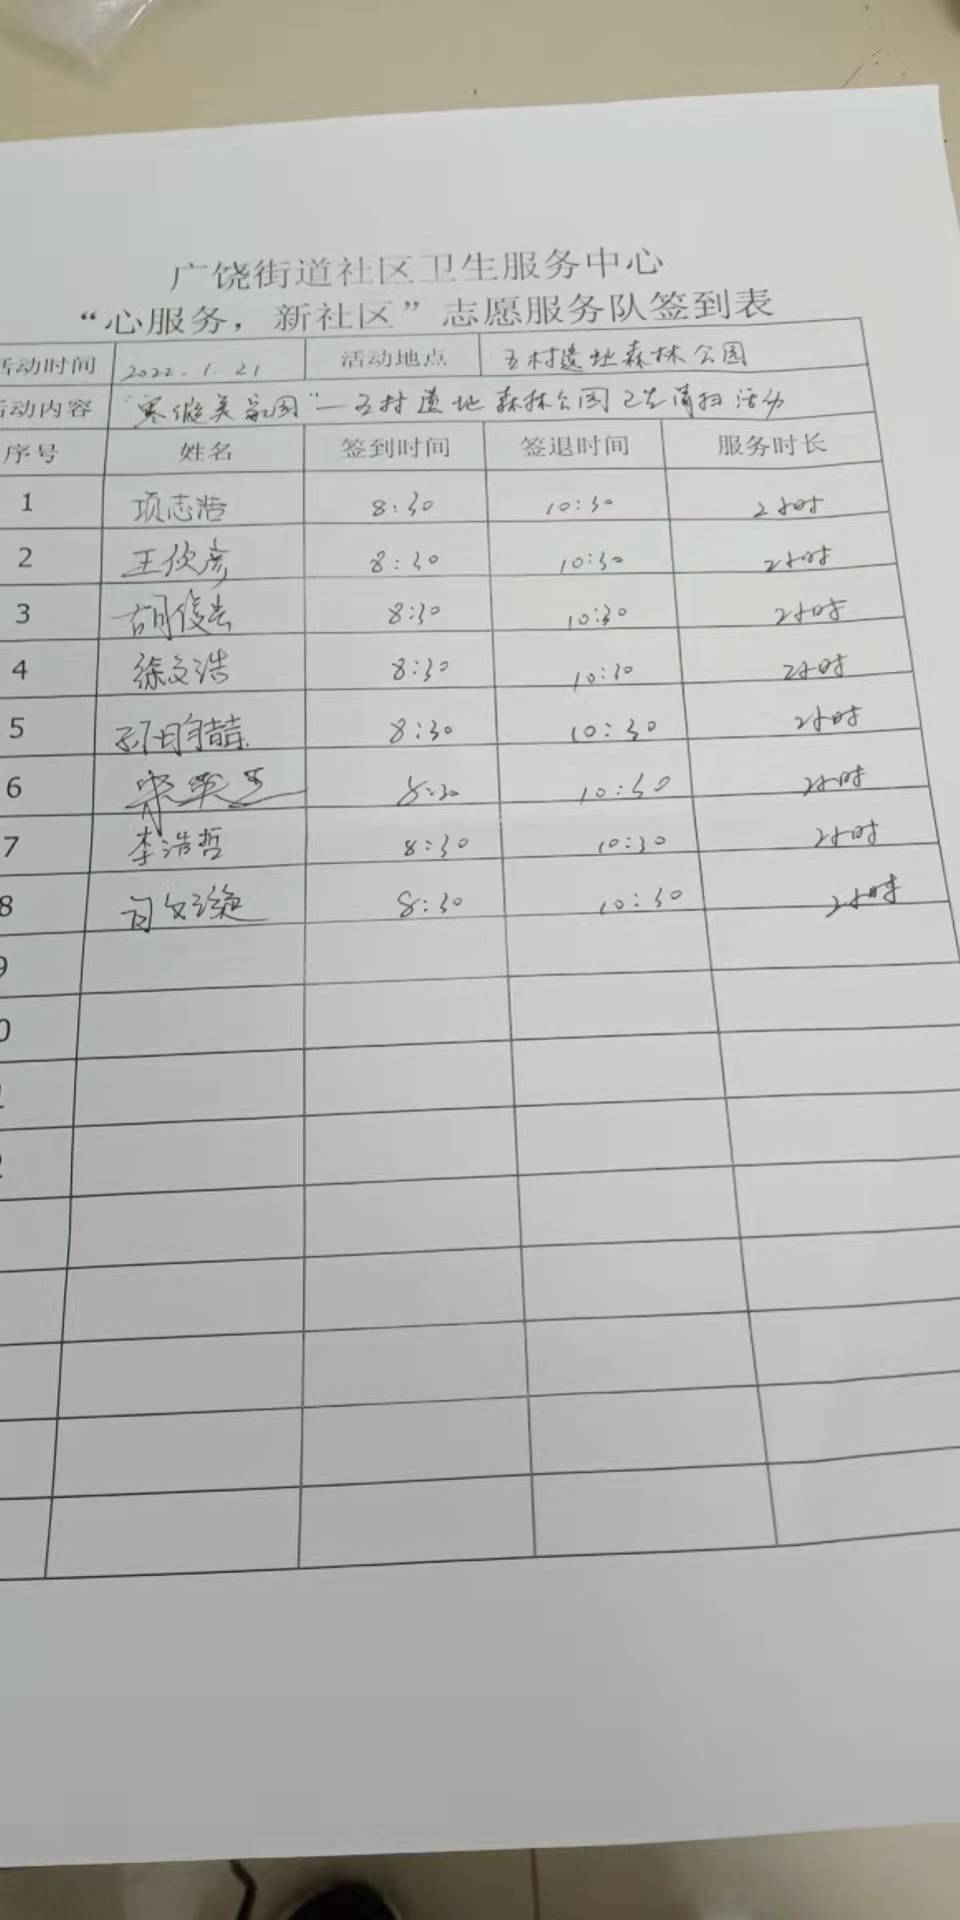 广饶街道社区卫生服务中心
“心服务，新社区”志愿服务队签到表
活动时间 2022.1.21 活动地点 五村遗址森林公园
活动内容 "寒假美家园"—五村遗地森林公园卫生清扫活动
序号 姓名 签到时间 签退时间 服务时长
1 项志浩 8:30 10:30 2小时
2 王欣彦 8:30 10:30 2小时
3 胡俊 8:30 10:30 2小时
4 徐文浩 8:30 10:30 2小时
5 8:30 10:30 2小时
6 8:30 10:30 2小时
7 李浩哲 8:30 10:30 2小时
8 8:30 10:30 2小时
9
0
1
2